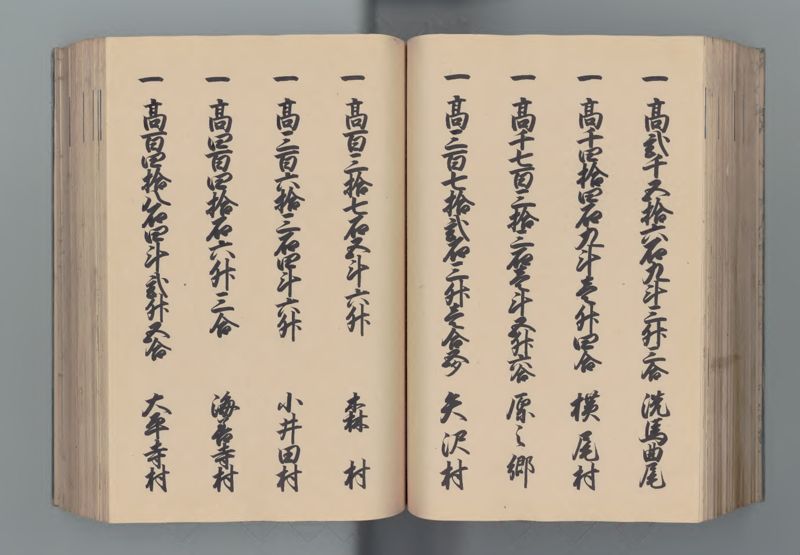 一 高弐千五拾六石九斗三升三合 洗馬曲尾
一 高千四拾四石九斗壱升四合 横尾村
一 高千七百三拾三石壱斗五升六合 原之郷
一 高三百七拾弐石三升壱合五夕 矢沢村
一 高百三拾七石五斗六升 森村
一 高三百六拾三石四斗六升 小井田村
一 高四百四拾石六升三合 海善寺村
一 高百四拾八石四斗弐升五合 大平寺村